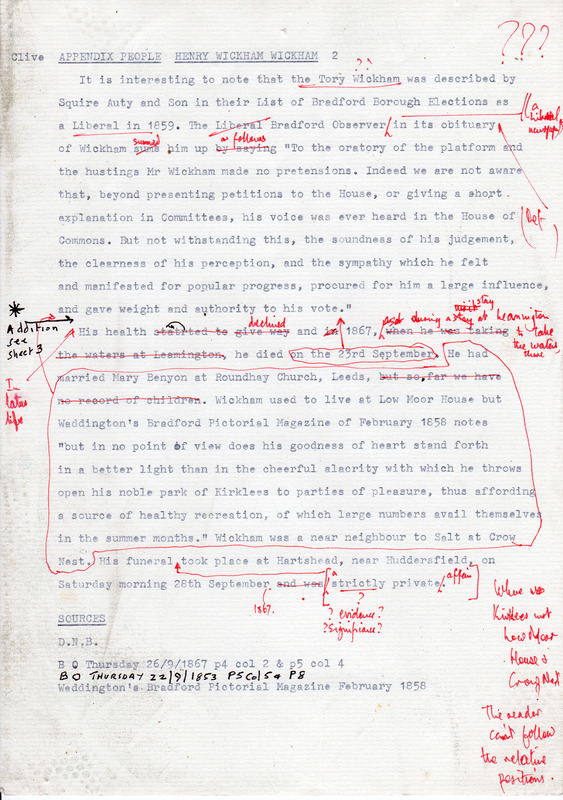 ???
Clive APPENDIX PEOPLE HENRY WICKHAM WICKHAM 2
? ?
It is interesting to note that the Tory Wickham was described by
Squire Auty and Son in their List of Bradford Borough Elections as
a Liberal in 1859. The Liberal Bradford Observer in its obituary
(a Liberal newspaper)
summed as follows
of Wickham sums him up by saying "To the oratory of the platform and
the hustings Mr Wickham made no pretensions. Indeed we are not aware
that, beyond presenting petitions to the House, or giving a short
explanation in Committees, his voice was ever heard in the House of
(Ref )
Commons. But not withstanding this, the soundness of his judgement,
the clearness of his perception, and the sympathy which he felt
and manifested for popular progress, procured for him a large influence,
and gave weight and authority to his vote."
Addition see sheet 3
declined
during a stay at Leamington to take the waters there
His health statrted to give way and in 1867, when he was taking
the waters at Leamington, he died on the 23rd September. He had
In later life
married Mary Benyon at Roundhay Church, Leeds, but so,far we have
no record of children. Wickham used to live at Low Moor House but
Weddington's Bradford Pictorial Magazine of February 1858 notes
"but in no point of view does his goodness of heart stand forth
in a better light than in the cheerful alacrity with which he throws
open his noble park of Kirklees to parties of pleasure, thus affording
a source of healthy recreation, of which large numbers avail themselves
in the summer months." Wickham was a near neighbour to Salt at Crow
Nest. His funeral took place at Hartshead, near Huddersfield, on
Saturday morning 28th September and was strictly private.
1867. a affair
?
? evidence?
? significance?
SOURCES
D.N.B.
B O Thursday 26/9/1867 p4 col 2 & p5 col 4
B O THURSDAY 22/9/1853 P5 Col 5 & P8
Weddington's Bradford Pictorial Magazine February 1858
Where was
Kirklees not
Low Moor
House &
Crow Nest
The reader
can't follow
the relative
positions.